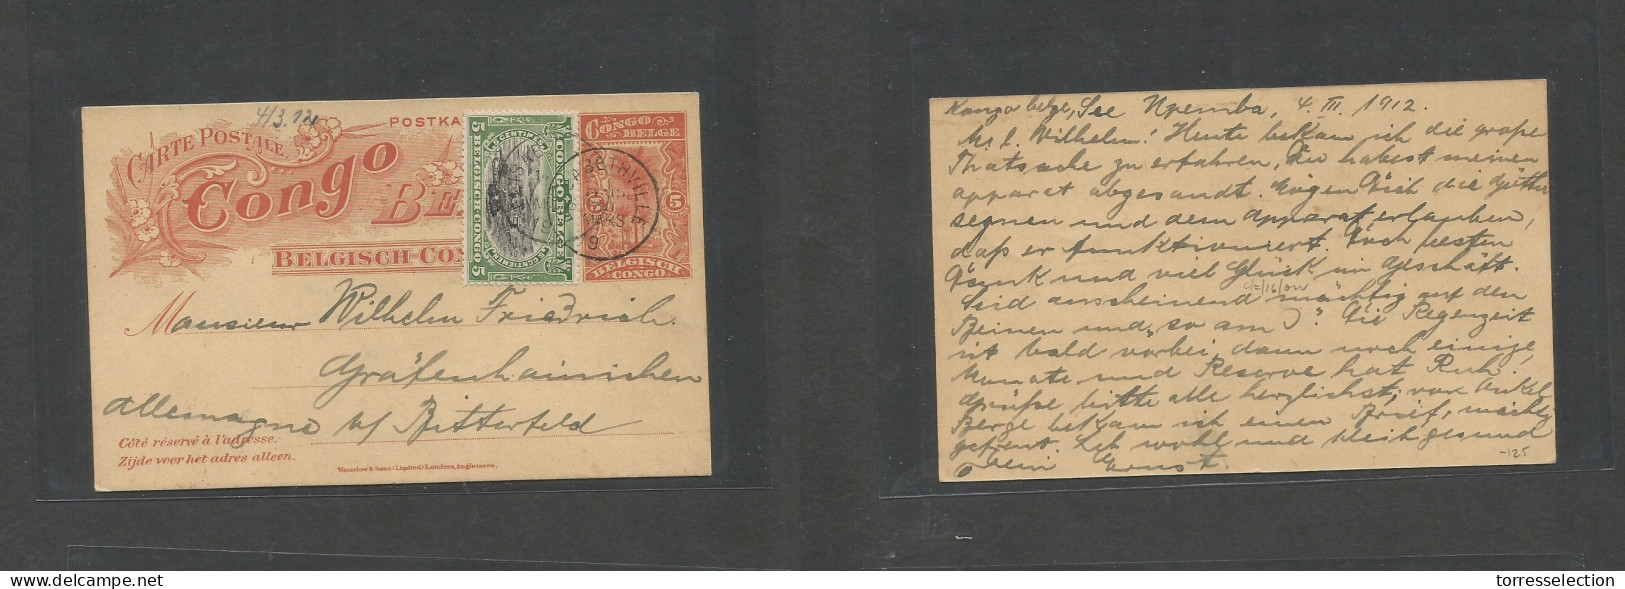 4/3.12
POSTKA
CARTE POSTALE
Congo
BE
BELGISCH-CON
5 CENTIEMES 5
CONGO BELGE
BELGISCH-CONGO
5 CENTIEMEN 5
CONGO BELGE
5 5
BELGISCH CONGO
ABETHVILLE
Monsieur Wilhelm Friedrich.
Gräfenhainichen
Allemagne b/ Bitterfeld
Côté réservé à l'adresse.
Zijde voor het adres alleen.
Waterlow & Sons Limited, Londres, Angleterre.
Kongo belge, See Npemba, 4. III. 1912.
M. l. Wilhelm! Heute bekam ich die große
Thatsache zu erfahren, Du habest meinen
apparat abgesandt. Mögen Dich die Götter
segnen und dem apparat erlauben,
daß er funktioniert. Euch besten
Dank und viel Glück im Geschäft.
Seid anscheinend mächtig auf den
Beinen und „so am". Die Regenzeit
ist bald vorbei, dann noch einige
Monate und Reserve hat Ruh.
Grüße bitte alle herzlichst, von Onkel
Berge bekam ich einen Brief, mächtig
gefreut. Leb wohl und bleib gesund
Dein Ernst.
-125
torresselection